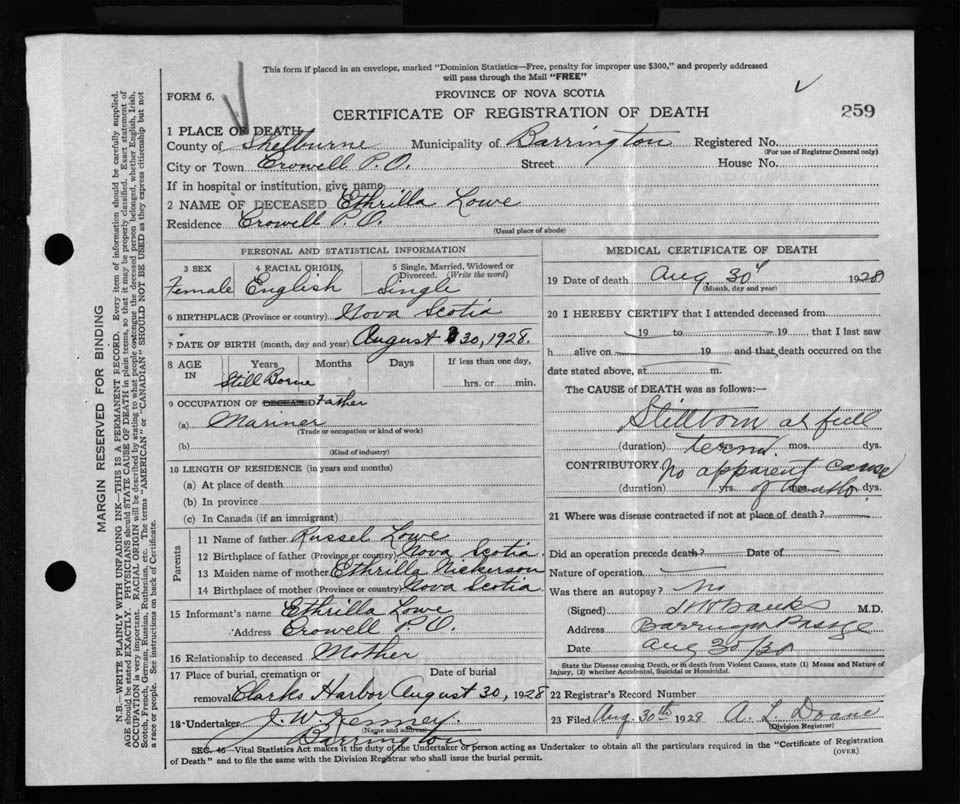 This form if placed in an envelope, marked "Dominion Statistics—Free, penalty for improper use $300," and properly addressed
will pass through the Mail "FREE"
FORM 6.
PROVINCE OF NOVA SCOTIA
CERTIFICATE OF REGISTRATION OF DEATH
259
1 PLACE OF DEATH
County of Shelburne Municipality of Barrington Registered No.
(For use of Registrar General only)
City or Town Crowell P.O. Street House No.
If in hospital or institution, give name
2 NAME OF DECEASED Ethrilla Lowe
Residence Crowell P.O.
(Usual place of abode)
MARGIN RESERVED FOR BINDING
N.B.—WRITE PLAINLY, WITH UNFADING INK—THIS IS A PERMANENT RECORD. Every item of information should be carefully supplied.
AGE should be stated EXACTLY. PHYSICIANS should STATE CAUSE OF DEATH in plain terms, so that it may be properly classified. Exact statement of
OCCUPATION is very important. RACIAL ORIGIN will be described by stating to what people or tongue the deceased person belonged, whether English, Irish,
Scotch, French, German, Russian, Ruthenian, etc. The terms "AMERICAN" or "CANADIAN" SHOULD NOT BE USED as they express citizenship but not
a race or people. See instructions on back of Certificate.
PERSONAL AND STATISTICAL INFORMATION
3 SEX
Female
4 RACIAL ORIGIN
English
5 Single, Married, Widowed or
Divorced. (Write the word)
Single
6 BIRTHPLACE (Province or country) Nova Scotia
7 DATE OF BIRTH (month, day and year) August 30, 1928.
8 AGE
IN
Years Months Days If less than one day,
Still Borne
hrs. or min.
9 OCCUPATION OF DECEASED Father
(a) Mariner
(Trade or occupation or kind of work)
(b)
(Kind of industry)
10 LENGTH OF RESIDENCE (in years and months)
(a) At place of death
(b) In province
(c) In Canada (if an immigrant)
Parents
11 Name of father Russel Lowe
12 Birthplace of father (Province or country) Nova Scotia.
13 Maiden name of mother Ethrilla Nickerson
14 Birthplace of mother (Province or country) Nova Scotia
15 Informant's name Ethrilla Lowe
Address Crowell P.O.
16 Relationship to deceased Mother
17 Place of burial, cremation or Date of burial
removal Clarks Harbor August 30, 1928
18 Undertaker J. W. Kenney.
(Name and address)
Barrington
MEDICAL CERTIFICATE OF DEATH
19 Date of death Aug. 30 1928
(Month, day and year)
20 I HEREBY CERTIFY that I attended deceased from
19 to 19 that I last saw
h alive on 19 and that death occurred on the
date stated above, at m.
The CAUSE of DEATH was as follows:—
Stillborn at full
(duration) term. yrs. mos. dys.
CONTRIBUTORY No apparent cause
(duration) yrs. of death. mos. dys.
21 Where was disease contracted if not at place of death?
Did an operation precede death? Date of
Nature of operation
Was there an autopsy? No
(Signed) M.D.
Address Barrington Passage
Date Aug 30
State the Disease causing Death, or in death from Violent Causes, state (1) Means and Nature of
Injury, (2) whether Accidental, Suicidal or Homicidal.
22 Registrar's Record Number
23 Filed Aug. 30th 1928 A. L. Doane
(Division Registrar)
SEC. 46—Vital Statistics Act makes it the duty of the Undertaker or person acting as Undertaker to obtain all the particulars required in the "Certificate of Registration
of Death" and to file the same with the Division Registrar who shall issue the burial permit.
(OVER)